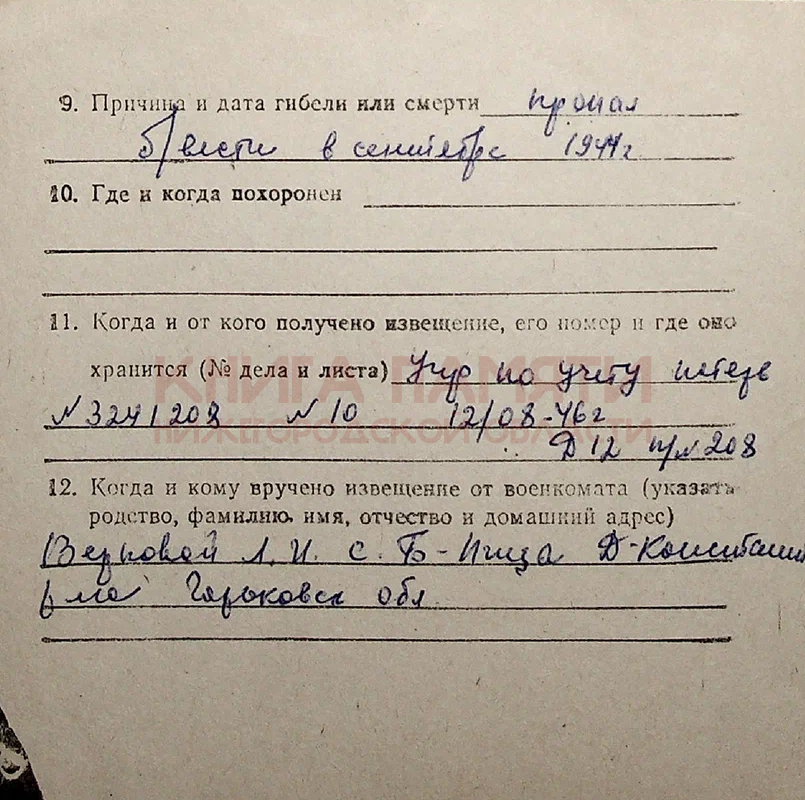 9. Причина и дата гибели или смерти пропал
б/вести в сентябре 1944г
10. Где и когда похоронен
11. Когда и от кого получено извещение, его номер и где оно
хранится (№ дела и листа) Упр по учету потерь
КНИГА ПАМЯТИ
№ 3241208 № 10 12/08-46г
НИЖЕГОРОДСКОЙ ОБЛАСТИ
Д 12 п/№ 208
12. Когда и кому вручено извещение от военкомата (указать
родство, фамилию, имя, отчество и домашний адрес)
Верховой Л. И. с. Б-Игша Д-Констант
р-на Горьковск обл